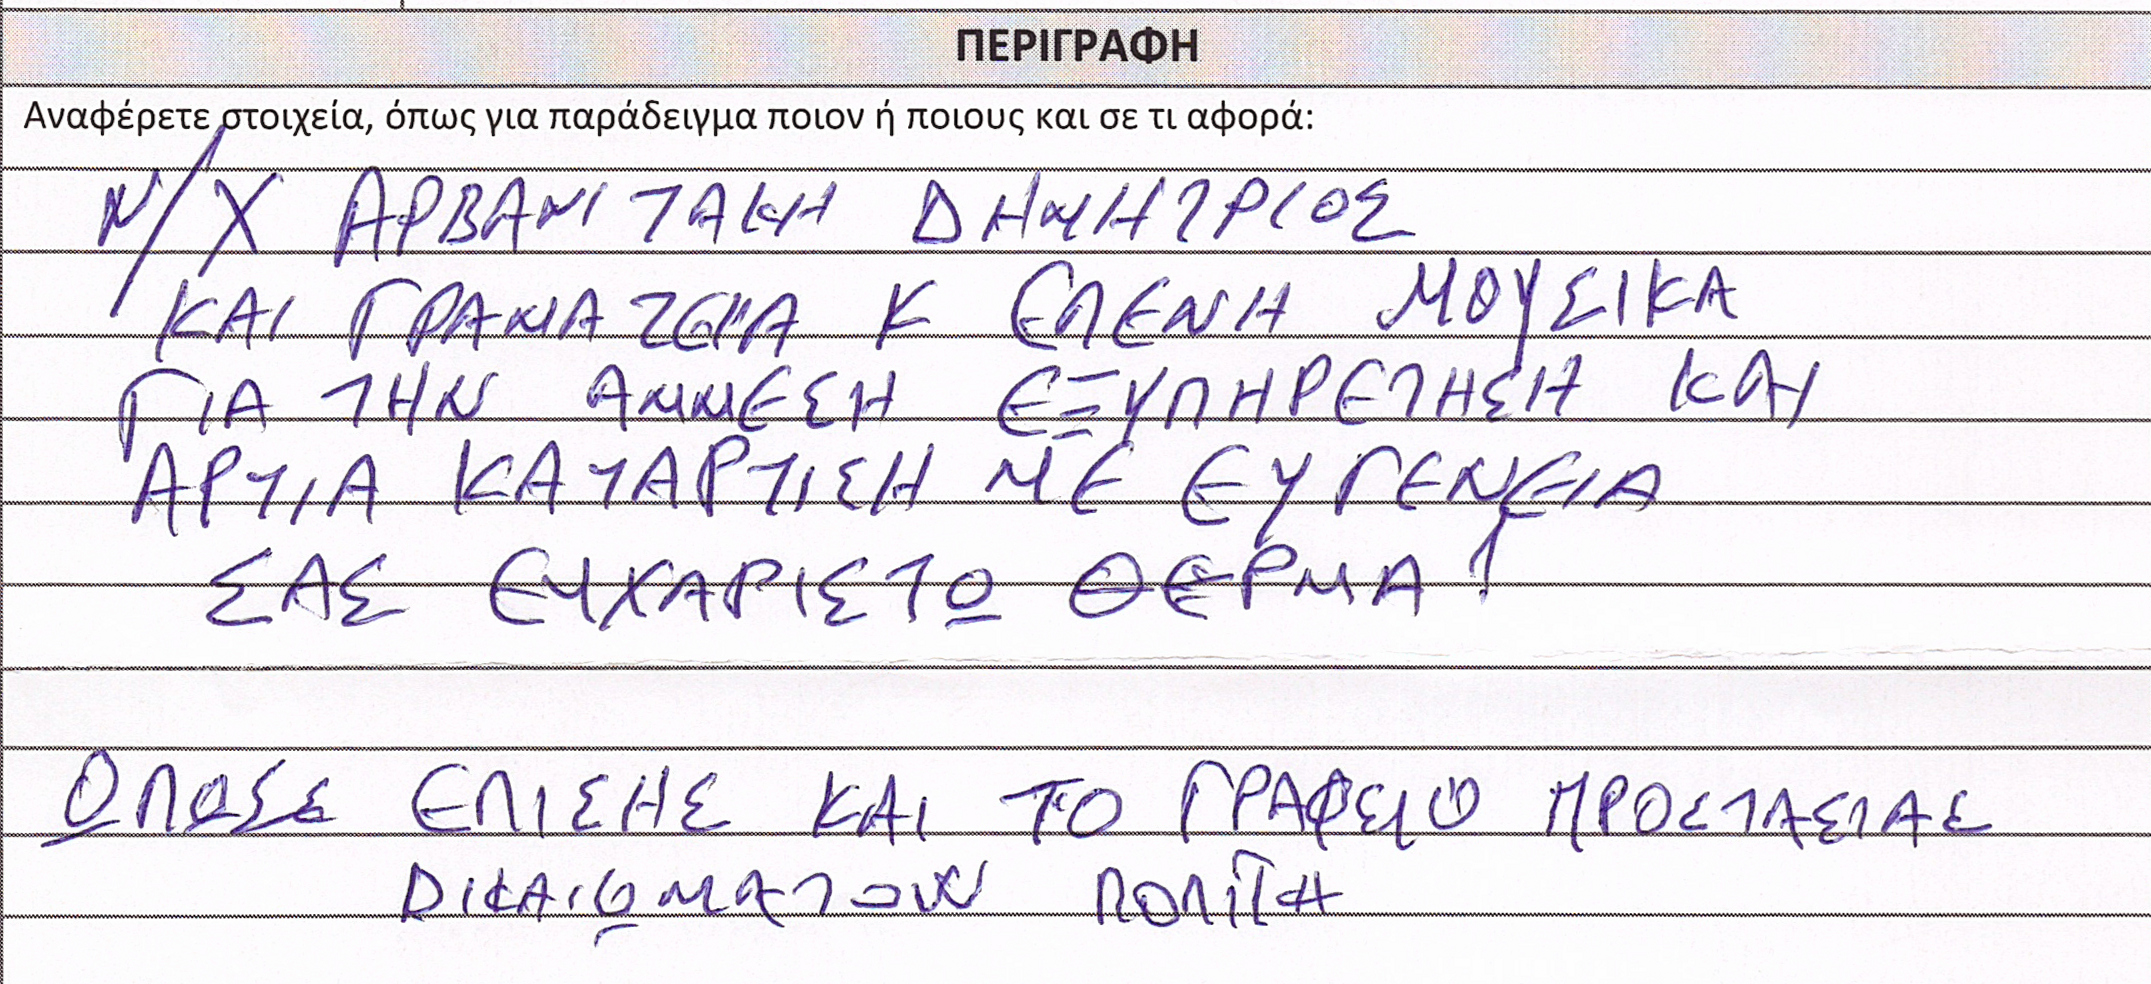 ΠΕΡΙΓΡΑΦΗ
Αναφέρετε στοιχεία, όπως για παράδειγμα ποιον ή ποιους και σε τι αφορά:
Ν/Χ ΑΡΒΑΝΙΤΑΚΗ ΔΗΜΗΤΡΙΟΣ
ΚΑΙ ΓΡΑΜΑΤΕΙΑ Κ ΕΛΕΝΗ ΜΟΥΣΙΚΑ
ΓΙΑ ΤΗΝ ΑΜΜΕΣΗ ΕΞΥΠΗΡΕΤΗΣΗ ΚΑΙ
ΑΡΤΙΑ ΚΑΤΑΡΤΙΣΗ ΜΕ ΕΥΓΕΝΕΙΑ
ΣΑΣ ΕΥΧΑΡΙΣΤΩ ΘΕΡΜΑ!
ΩΠΩΣ ΕΠΙΣΗΣ ΚΑΙ ΤΟ ΓΡΑΦΕΙΟ ΠΡΟΣΤΑΣΙΑΣ
ΔΙΚΑΙΩΜΑΤΩΝ ΠΟΛΙΤΗ